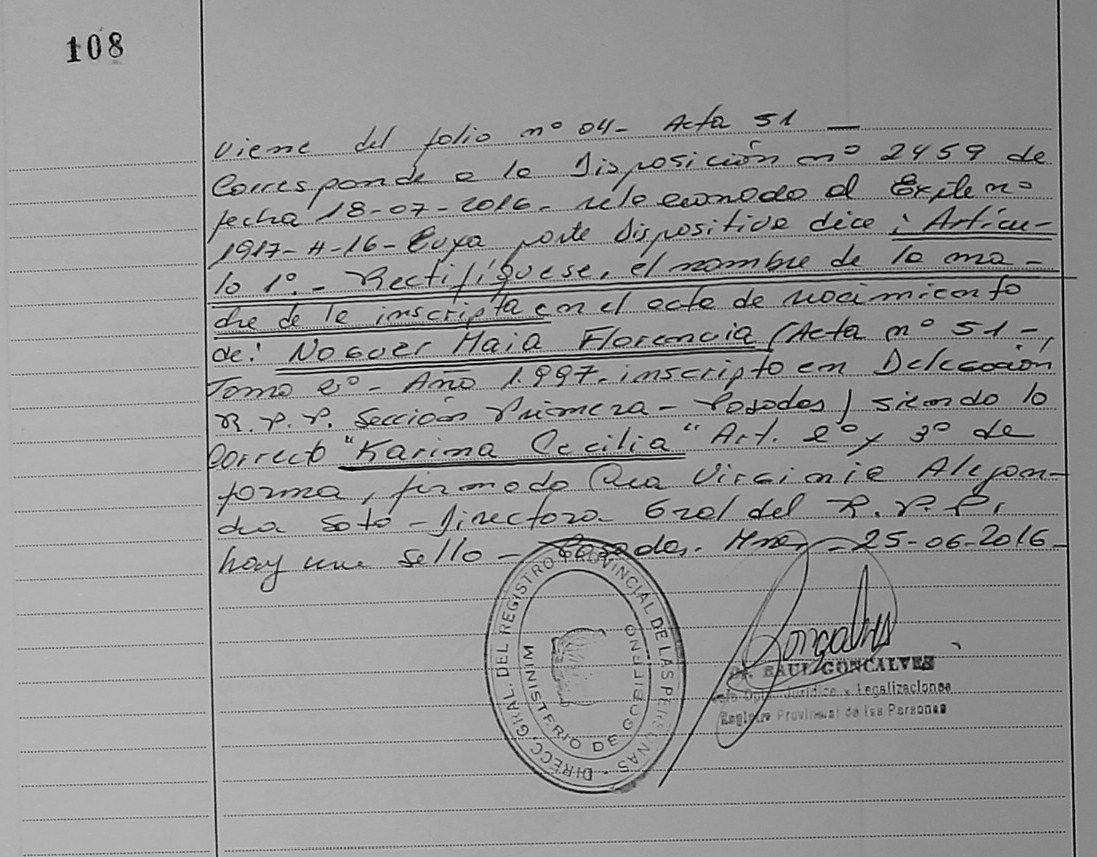 108
Viene del folio nº 04- Acta 51 —
Corresponde a la Disposición nº 2459 de
fecha 18-07-2016- relacionado al Expte nº
1917-H-16- Cuya parte dispositiva dice: Artícu-
lo 1º.- Rectifíquese, el nombre de la ma-
dre de la inscripta en el acta de nacimiento
de: Noguer Maia Florencia (Acta nº 51-,
Tomo 2º- Año 1.997- inscripto en Delegación
R.P.P. Sección Primera- Posadas) siendo lo
correcto "Karina Cecilia" Art. 2º y 3º de
forma, firmado Dra Virginia Alejan-
dra Soto- Directora Gral del R.P.P.
hay un sello- Posadas. Mnes, -25-06-2016-
DIRECC. GRAL. DEL REGISTRO PROVINCIAL DE LAS PERSONAS
MINISTERIO DE GOBIERNO
Goncalves
Dr. RAUL GONCALVES
Dpto. Jurídico y Legalizaciones
Registro Provincial de las Personas